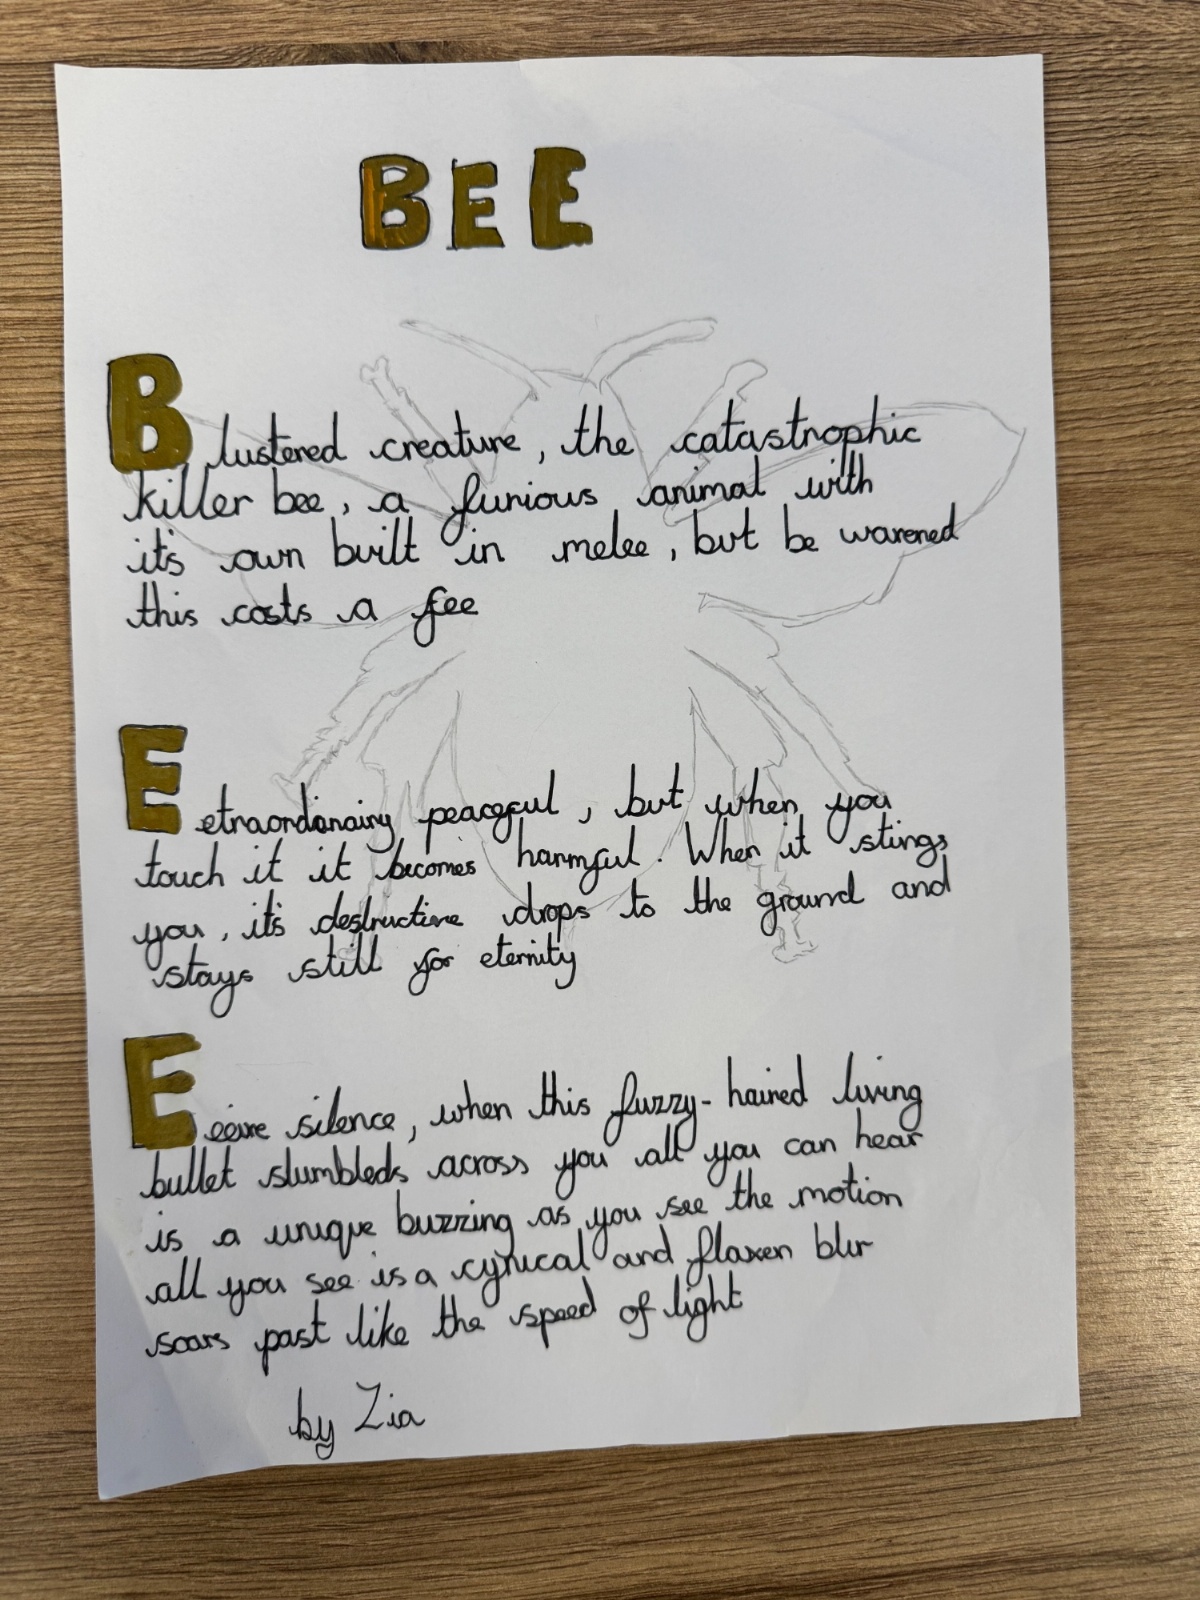 BEE
Blustered creature, the catastrophic
killer bee, a furious animal with
it's own built in melee, but be warened
this costs a fee
Eetraordanairy peaceful, but when you
touch it it becomes harmful. When it stings
you, it's destructive drops to the ground and
stays still for eternity
Eeeire silence, when this fuzzy-haired living
bullet slumbleds across you all you can hear
is a unique buzzing as you see the motion
all you see is a cynical and flaxen blur
soars past like the speed of light
by Zia